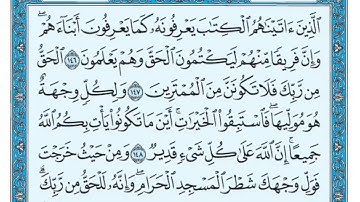 ٱلَّذِينَ ءَاتَيْنَٰهُمُ ٱلْكِتَٰبَ يَعْرِفُونَهُۥ كَمَا يَعْرِفُونَ أَبْنَآءَهُمْ ۖ
وَإِنَّ فَرِيقًا مِّنْهُمْ لَيَكْتُمُونَ ٱلْحَقَّ وَهُمْ يَعْلَمُونَ ١٤٦ ٱلْحَقُّ
مِن رَّبِّكَ فَلَا تَكُونَنَّ مِنَ ٱلْمُمْتَرِينَ ١٤٧ وَلِكُلٍّ وِجْهَةٌ
هُوَ مُوَلِّيهَا ۖ فَٱسْتَبِقُوا۟ ٱلْخَيْرَٰتِ ۚ أَيْنَ مَا تَكُونُوا۟ يَأْتِ بِكُمُ ٱللَّهُ
جَمِيعًا ۚ إِنَّ ٱللَّهَ عَلَىٰ كُلِّ شَىْءٍ قَدِيرٌ ١٤٨ وَمِنْ حَيْثُ خَرَجْتَ
فَوَلِّ وَجْهَكَ شَطْرَ ٱلْمَسْجِدِ ٱلْحَرَامِ ۖ وَإِنَّهُۥ لَلْحَقُّ مِن رَّبِّكَ ۗ